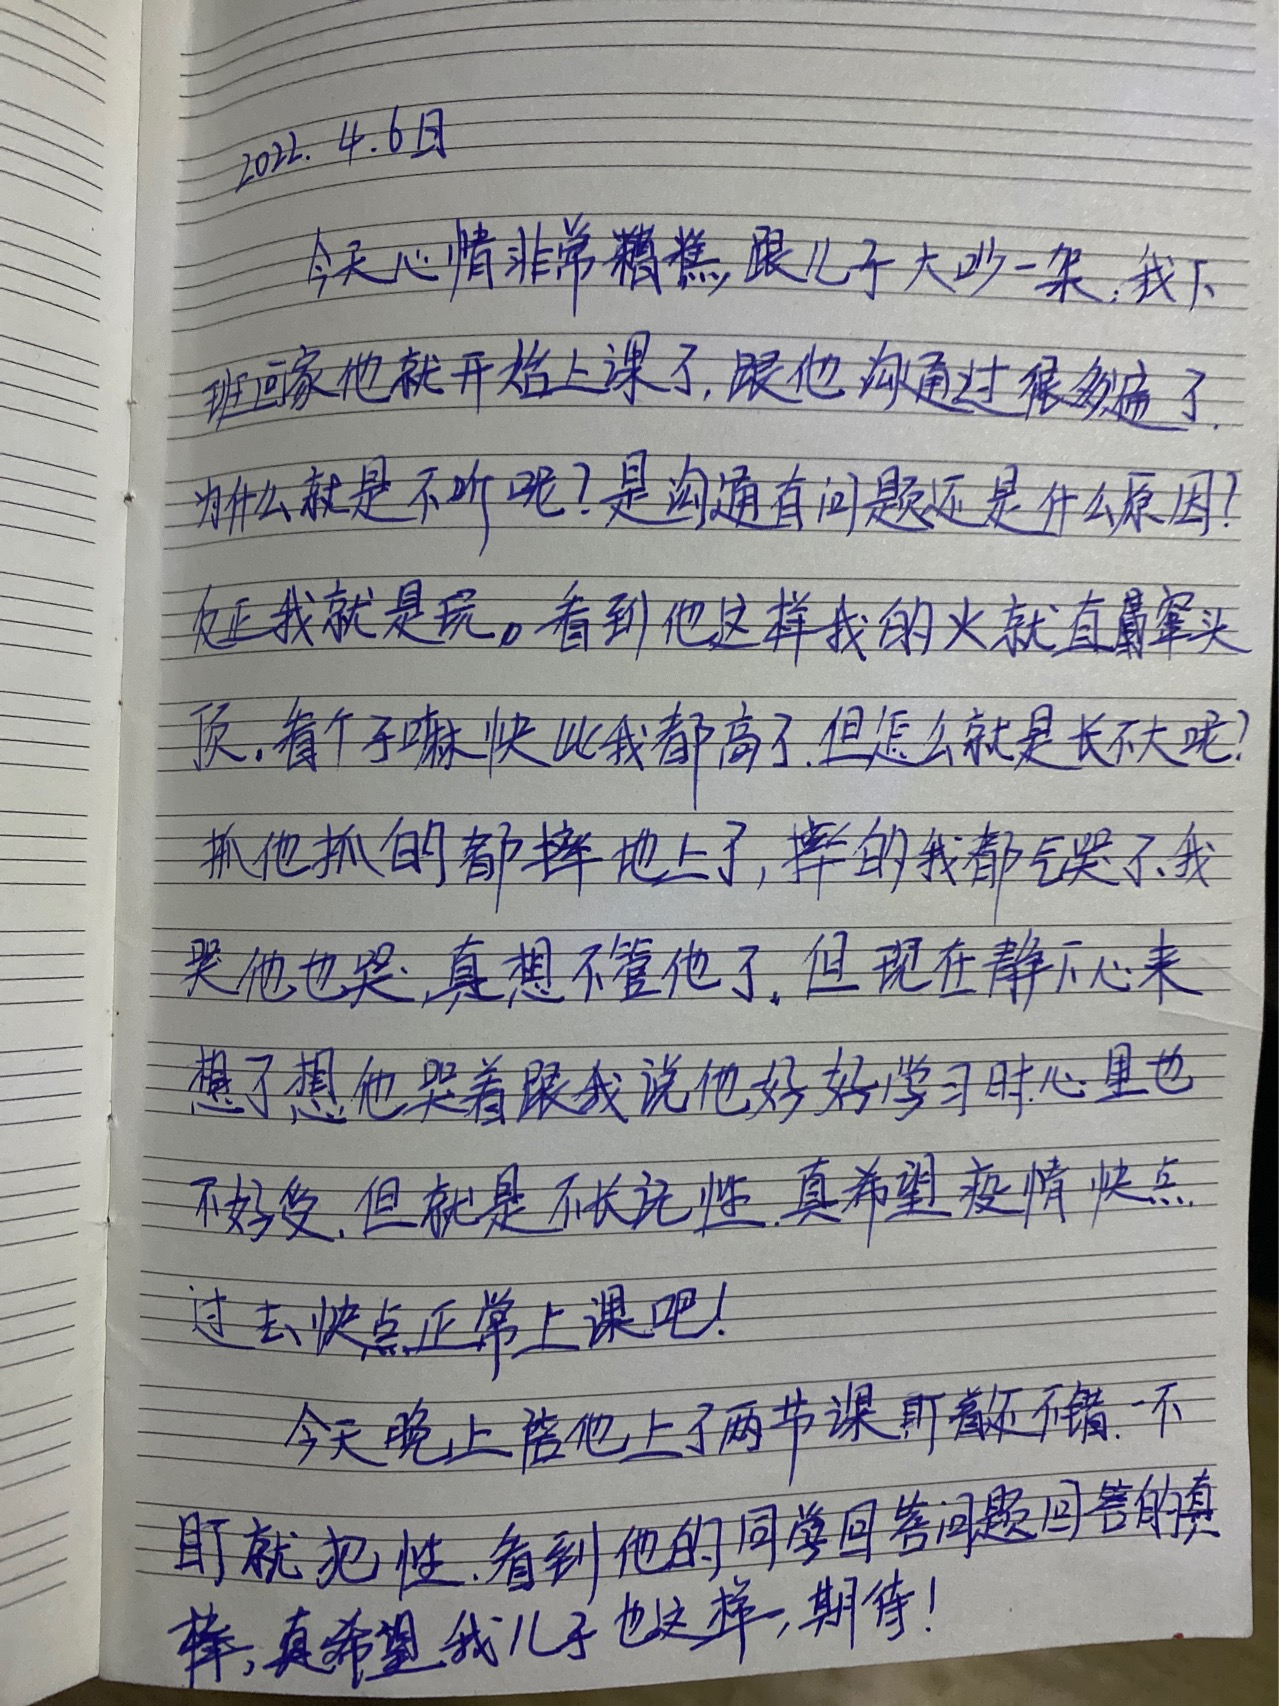 2022.4.6日
今天心情非常糟糕,跟儿子大吵一架,我下
班回家他就开始上课了,跟他沟通过很多遍了.
为什么就是不听呢?是沟通有问题还是什么原因?
反正我就是玩。看到他这样我的火就直窜头
顶,看个子嘛快比我都高了.但怎么就是长不大呢?
抓他抓的都摔地上了,摔的我都气哭了、我
哭他也哭,真想不管他了.但现在静下心来
想了想他哭着跟我说他好好学习时心里也
不好受,但就是不长记性.真希望疫情快点
过去快点正常上课吧!
今天晚上陪他上了两节课盯着还不错.一不
盯就犯性.看到他的同学回答问题回答的真
棒,真希望我儿子也这样,期待!